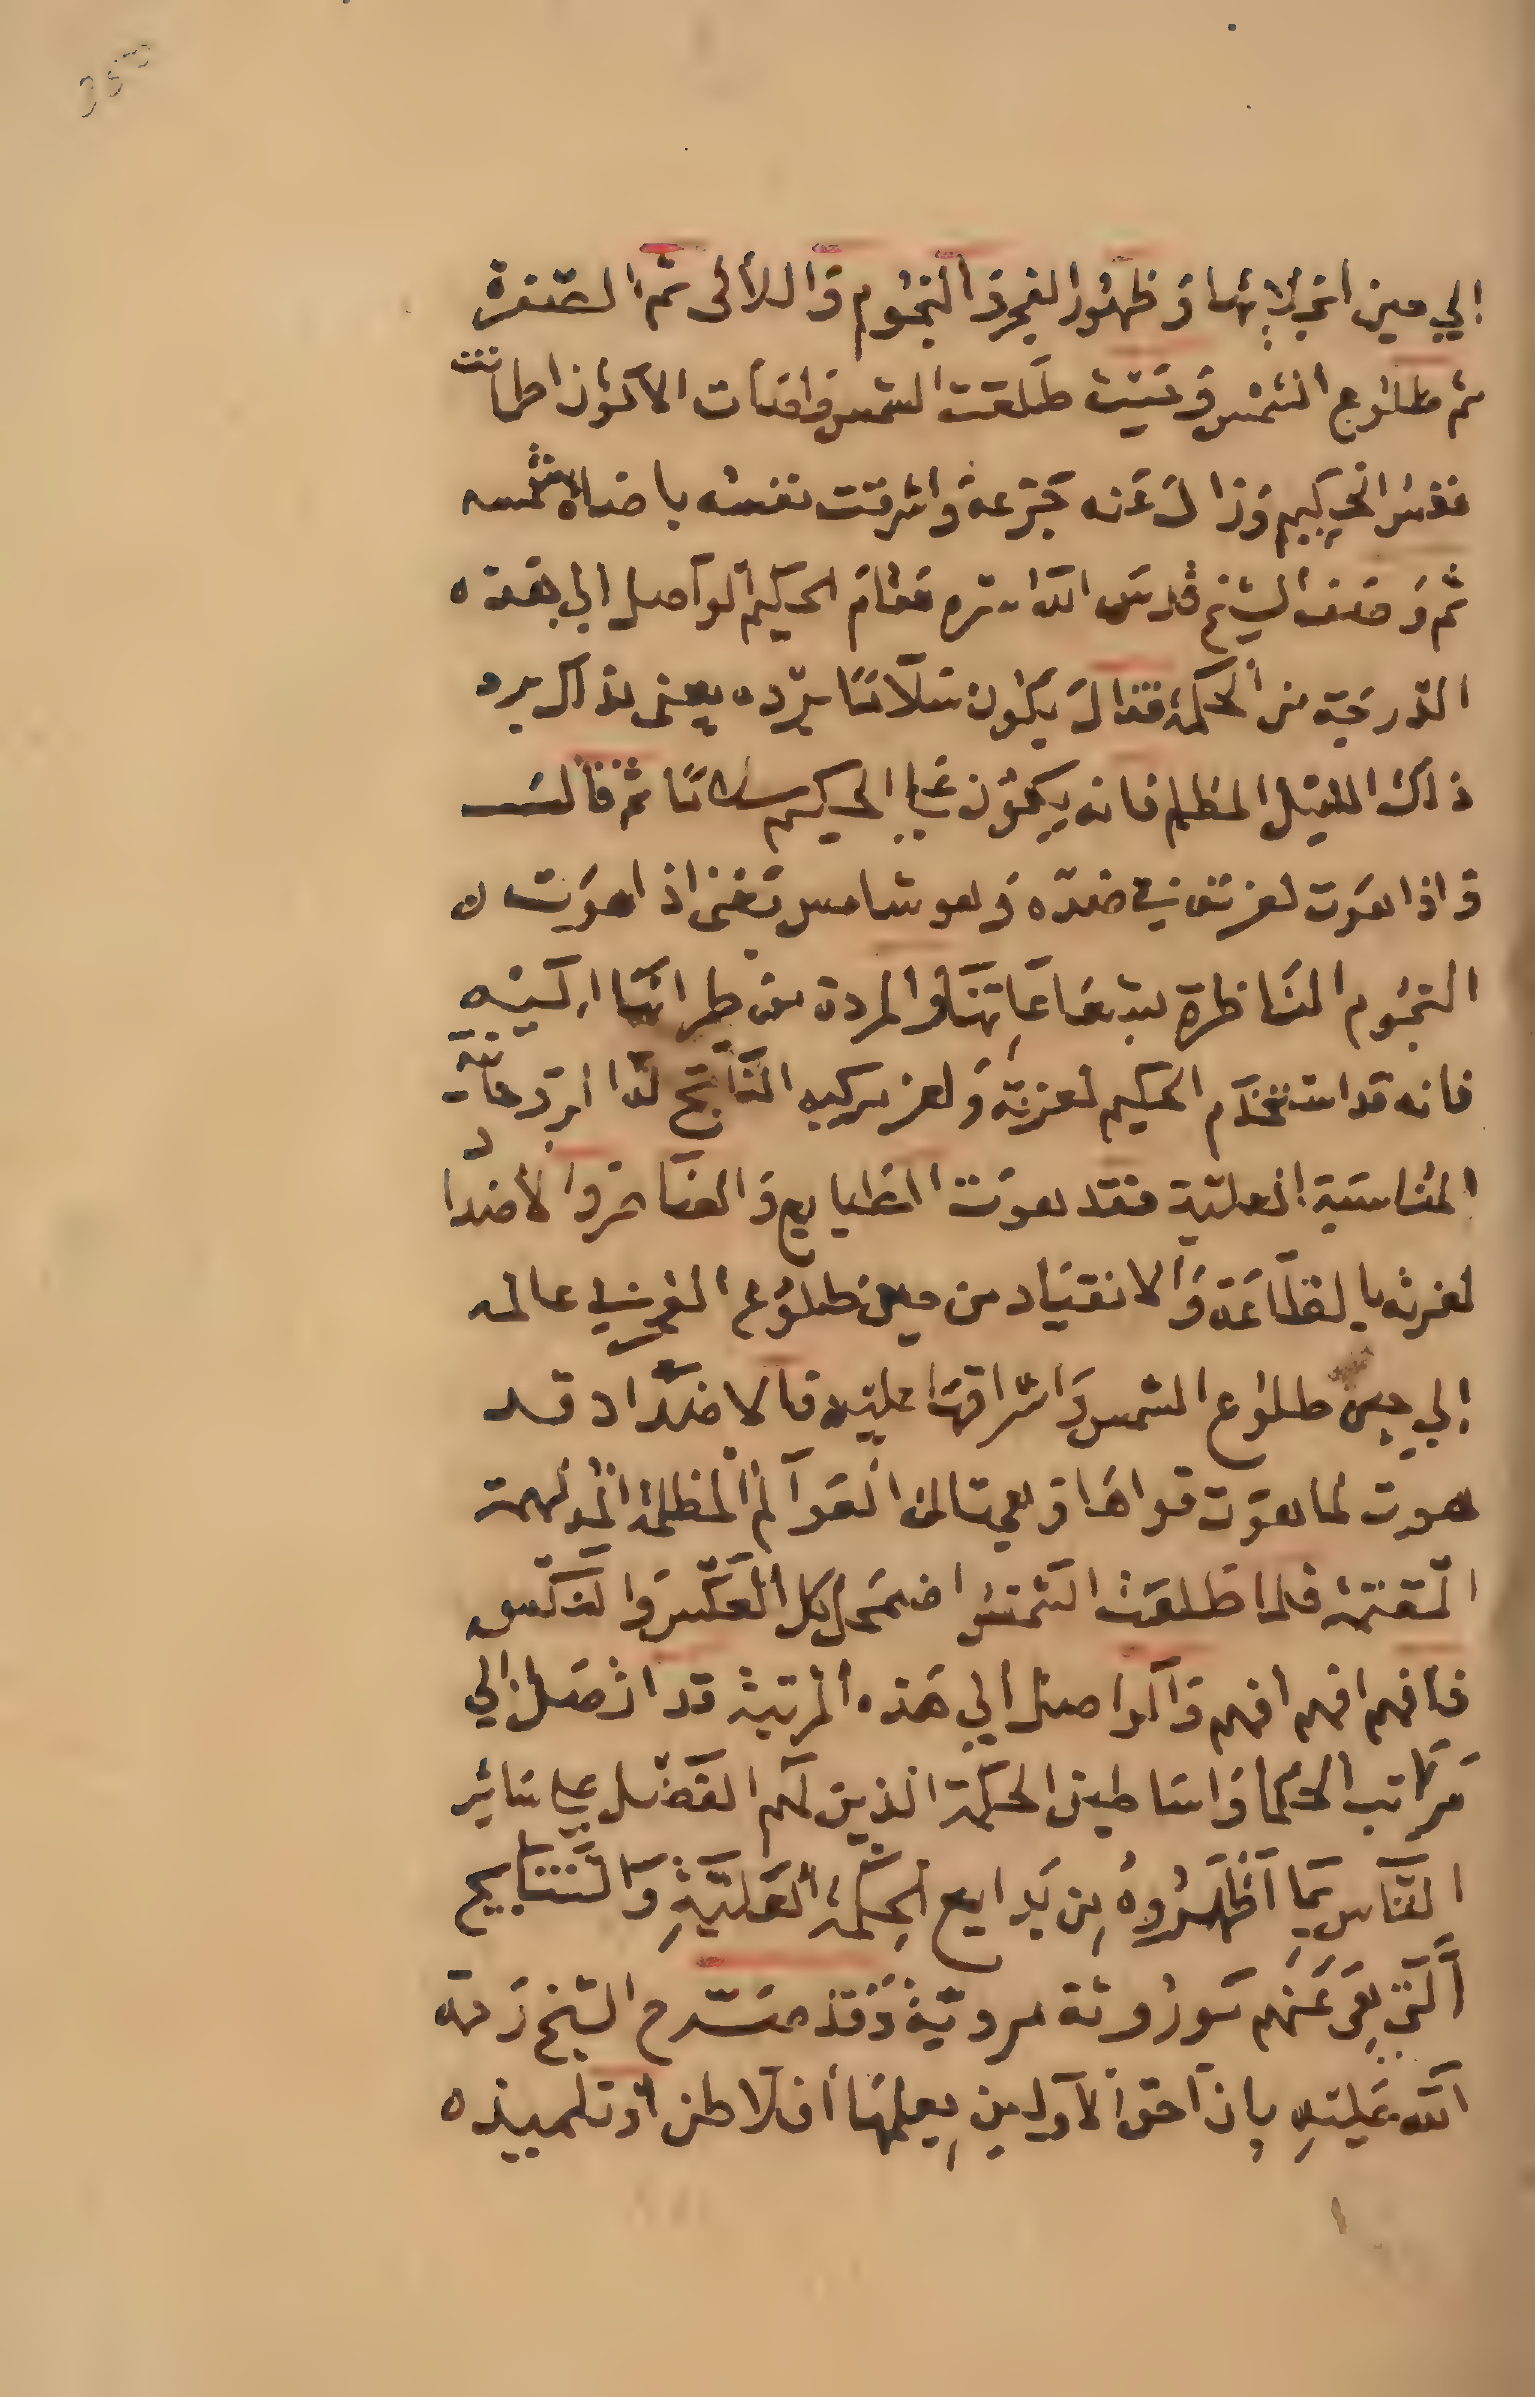 الي حين انجلائها وظهور الفجر والنجوم واللألى ثم الصفرة
ثم طلوع الشمس وحيث طلعت الشمس واضات الاكوان اطمانت
نفس الحكيم وزال عنه جزعه واشرقت نفسه باضاة شمسه
ثم وصف الشيخ قدس الله سره مقام الحكيم الواصل الي هذه
الدرجة من الحكمة فقال يكون سلاما برده يعنى بذاك برد
ذاك الليل المظلم فانه يكون علي الحكيم سلاما ثم قال
واذا هوت لعزته في ضده وهو شامس يعنى اذا هوت
النجوم الناظرة بشعاعاتها والمردة من اكسيره
فانه قد استخدم الحكيم لعزته ولعز مركبه الناتج
المناسبة العلية فقد هوت الطبايع والعناصر والاضداد
لعزته بالطاعة والانقياد من حين طلوع الفجر في عالمه
الي حين طلوع الشمس واشراقها عليه فالاضداد قد
هوت لما هوت قواها وهي تلك العوالم المظلمة المدلهمة
المقتمة فلما طلعت الشمس اضمحل كل العكس والنكس
فافهم افهم افهم والواصل الي هذه المرتبة قد اتصل الي
مراتب الحكما واساطين الحكمة الذين لهم الفضل علي سائر
الناس بما اظهروه من بدايع الحكمة العلية والنتايج
التي هى عنهم موروثة مروية وقد صرح الشيخ رحمة
الله عليه بان احق الاولين بعلمها افلاطن او تلميذه